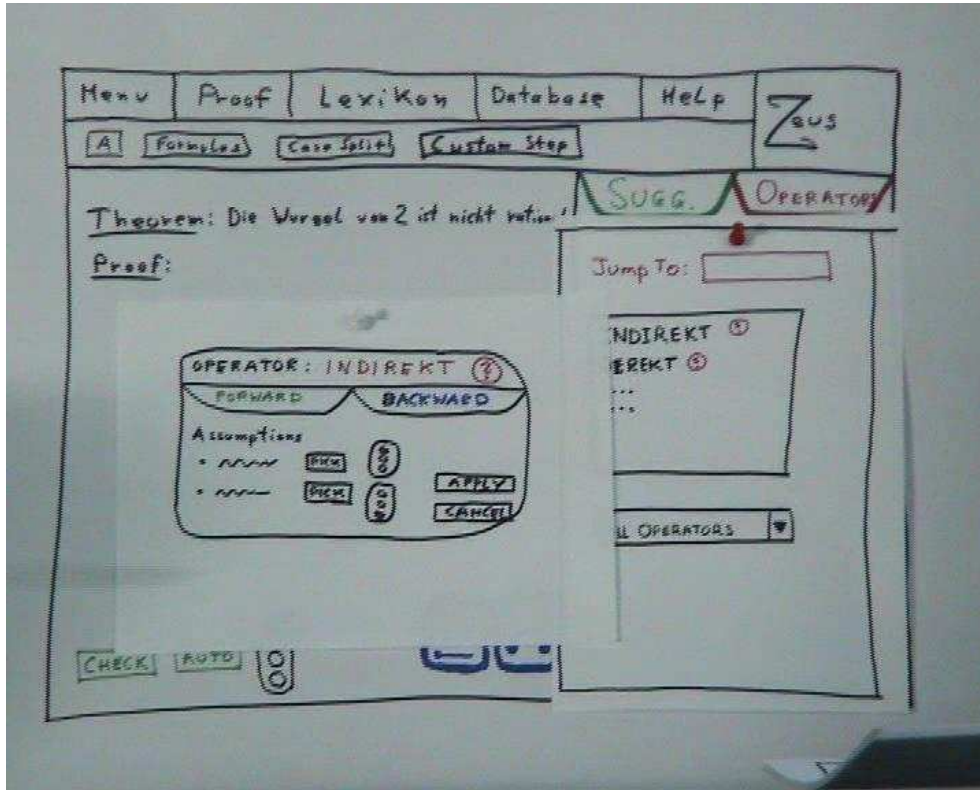 Menu Proof Lexikon Database Help
Zeus
A Formulas Case Split Custom Step
SUGG. OPERATORS
Theorem: Die Wurzel von 2 ist nicht ration
Proof:
Jump To:
NDIREKT ?
EREKT ?
...
...
OPERATOR: INDIREKT ?
FORWARD BACKWARD
Assumptions
PICK
PICK
APPLY
CANCEL
LL OPERATORS
CHECK AUTO